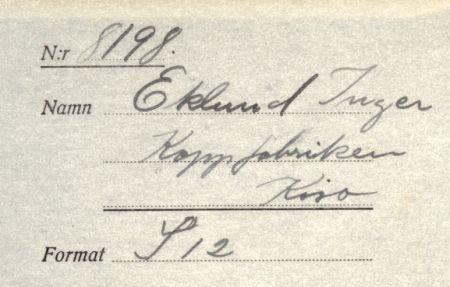 N:r 8198.
Namn Eklund Inger
Kappfabriken
Kisa
Format S 12